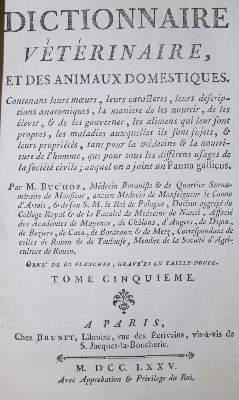 DICTIONNAIRE
VÉTÉRINAIRE,
ET DES ANIMAUX DOMESTIQUES.
Contenant leurs mœurs, leurs caracteres, leurs descrip-
tions anatomiques, la maniere de les nourrir, de les
élever, & de les gouverner, les alimens qui leur sont
propres, les maladies auxquelles ils sont sujets, &
leurs propriétés, tant pour la médecine & la nourri-
ture de l'homme, que pour tous les différens usages de
la société civile; auquel on a joint un Fauna gallicus.
Par M. BUCHOZ, Médecin Botaniste & de Quartier Surnu-
méraire de Monsieur, ancien Médecin de Monseigneur le Comte
d'Artois, & de feu S. M. le Roi de Pologne, Docteur aggrégé du
College Royal & de la Faculté de Médecine de Nancy, Associé
des Académies de Mayence, de Châlons, d'Angers, de Dijon,
de Beziers, de Caen, de Bordeaux & de Metz, Correspondant de
celles de Rouen & de Toulouse, Membre de la Société d'Agri-
culture de Rouen.
ORNÉ DE 60 PLANCHES, GRAVÉES EN TAILLE-DOUCE.
TOME CINQUIEME.
A PARIS,
Chez BRUNET, Libraire, rue des Écrivains, vis-à-vis de
S. Jacques-la-Boucherie.
M. DCC. LXXV.
Avec Approbation & Privilege du Roi.